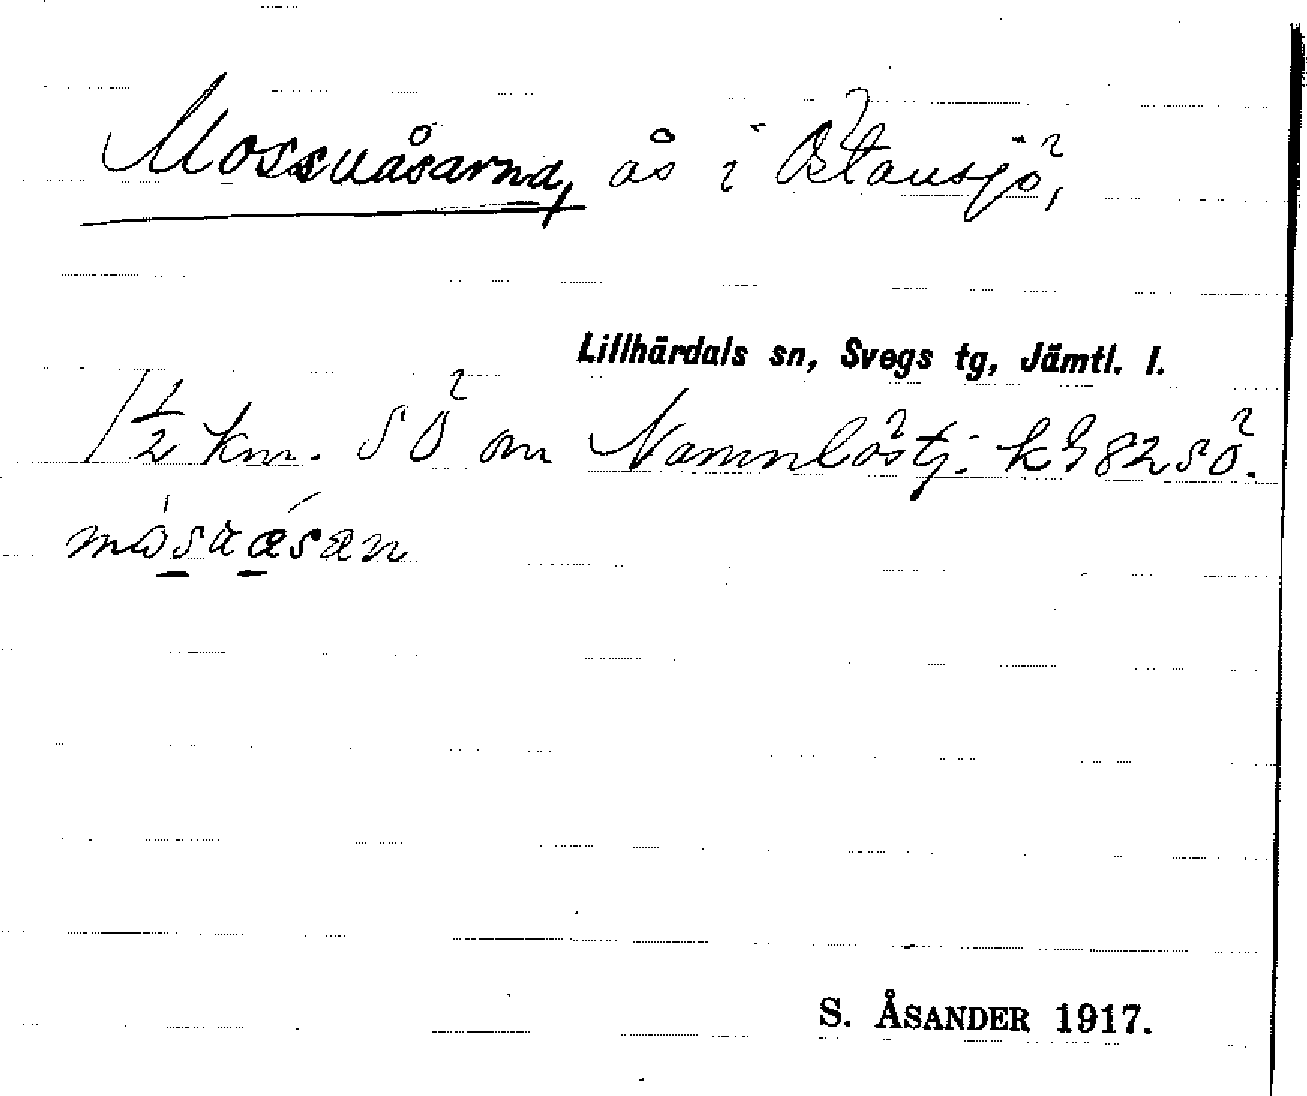 Mossuåsarna, ås i Östansjö,
Lillhärdals sn, Svegs tg, Jämtl. l.
1 1/2 km. SÖ om Namnlöstj. k 9 82 SÖ.
måsuæsæn
S. ÅSANDER 1917.